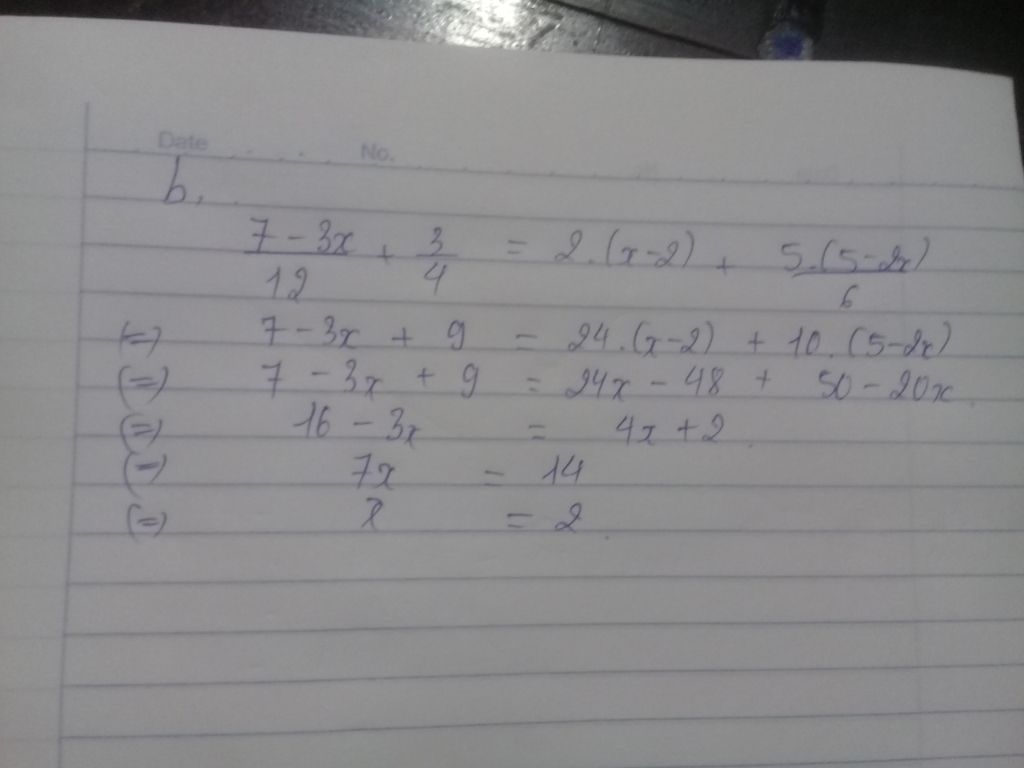 Date No.
b,
7 - 3x / 12 + 3 / 4 = 2.(x-2) + 5.(5-2x) / 6
(=) 7 - 3x + 9 = 24.(x-2) + 10.(5-2x)
(=) 7 - 3x + 9 = 24x - 48 + 50 - 20x
(=) 16 - 3x = 4x + 2
(=) 7x = 14
(=) x = 2